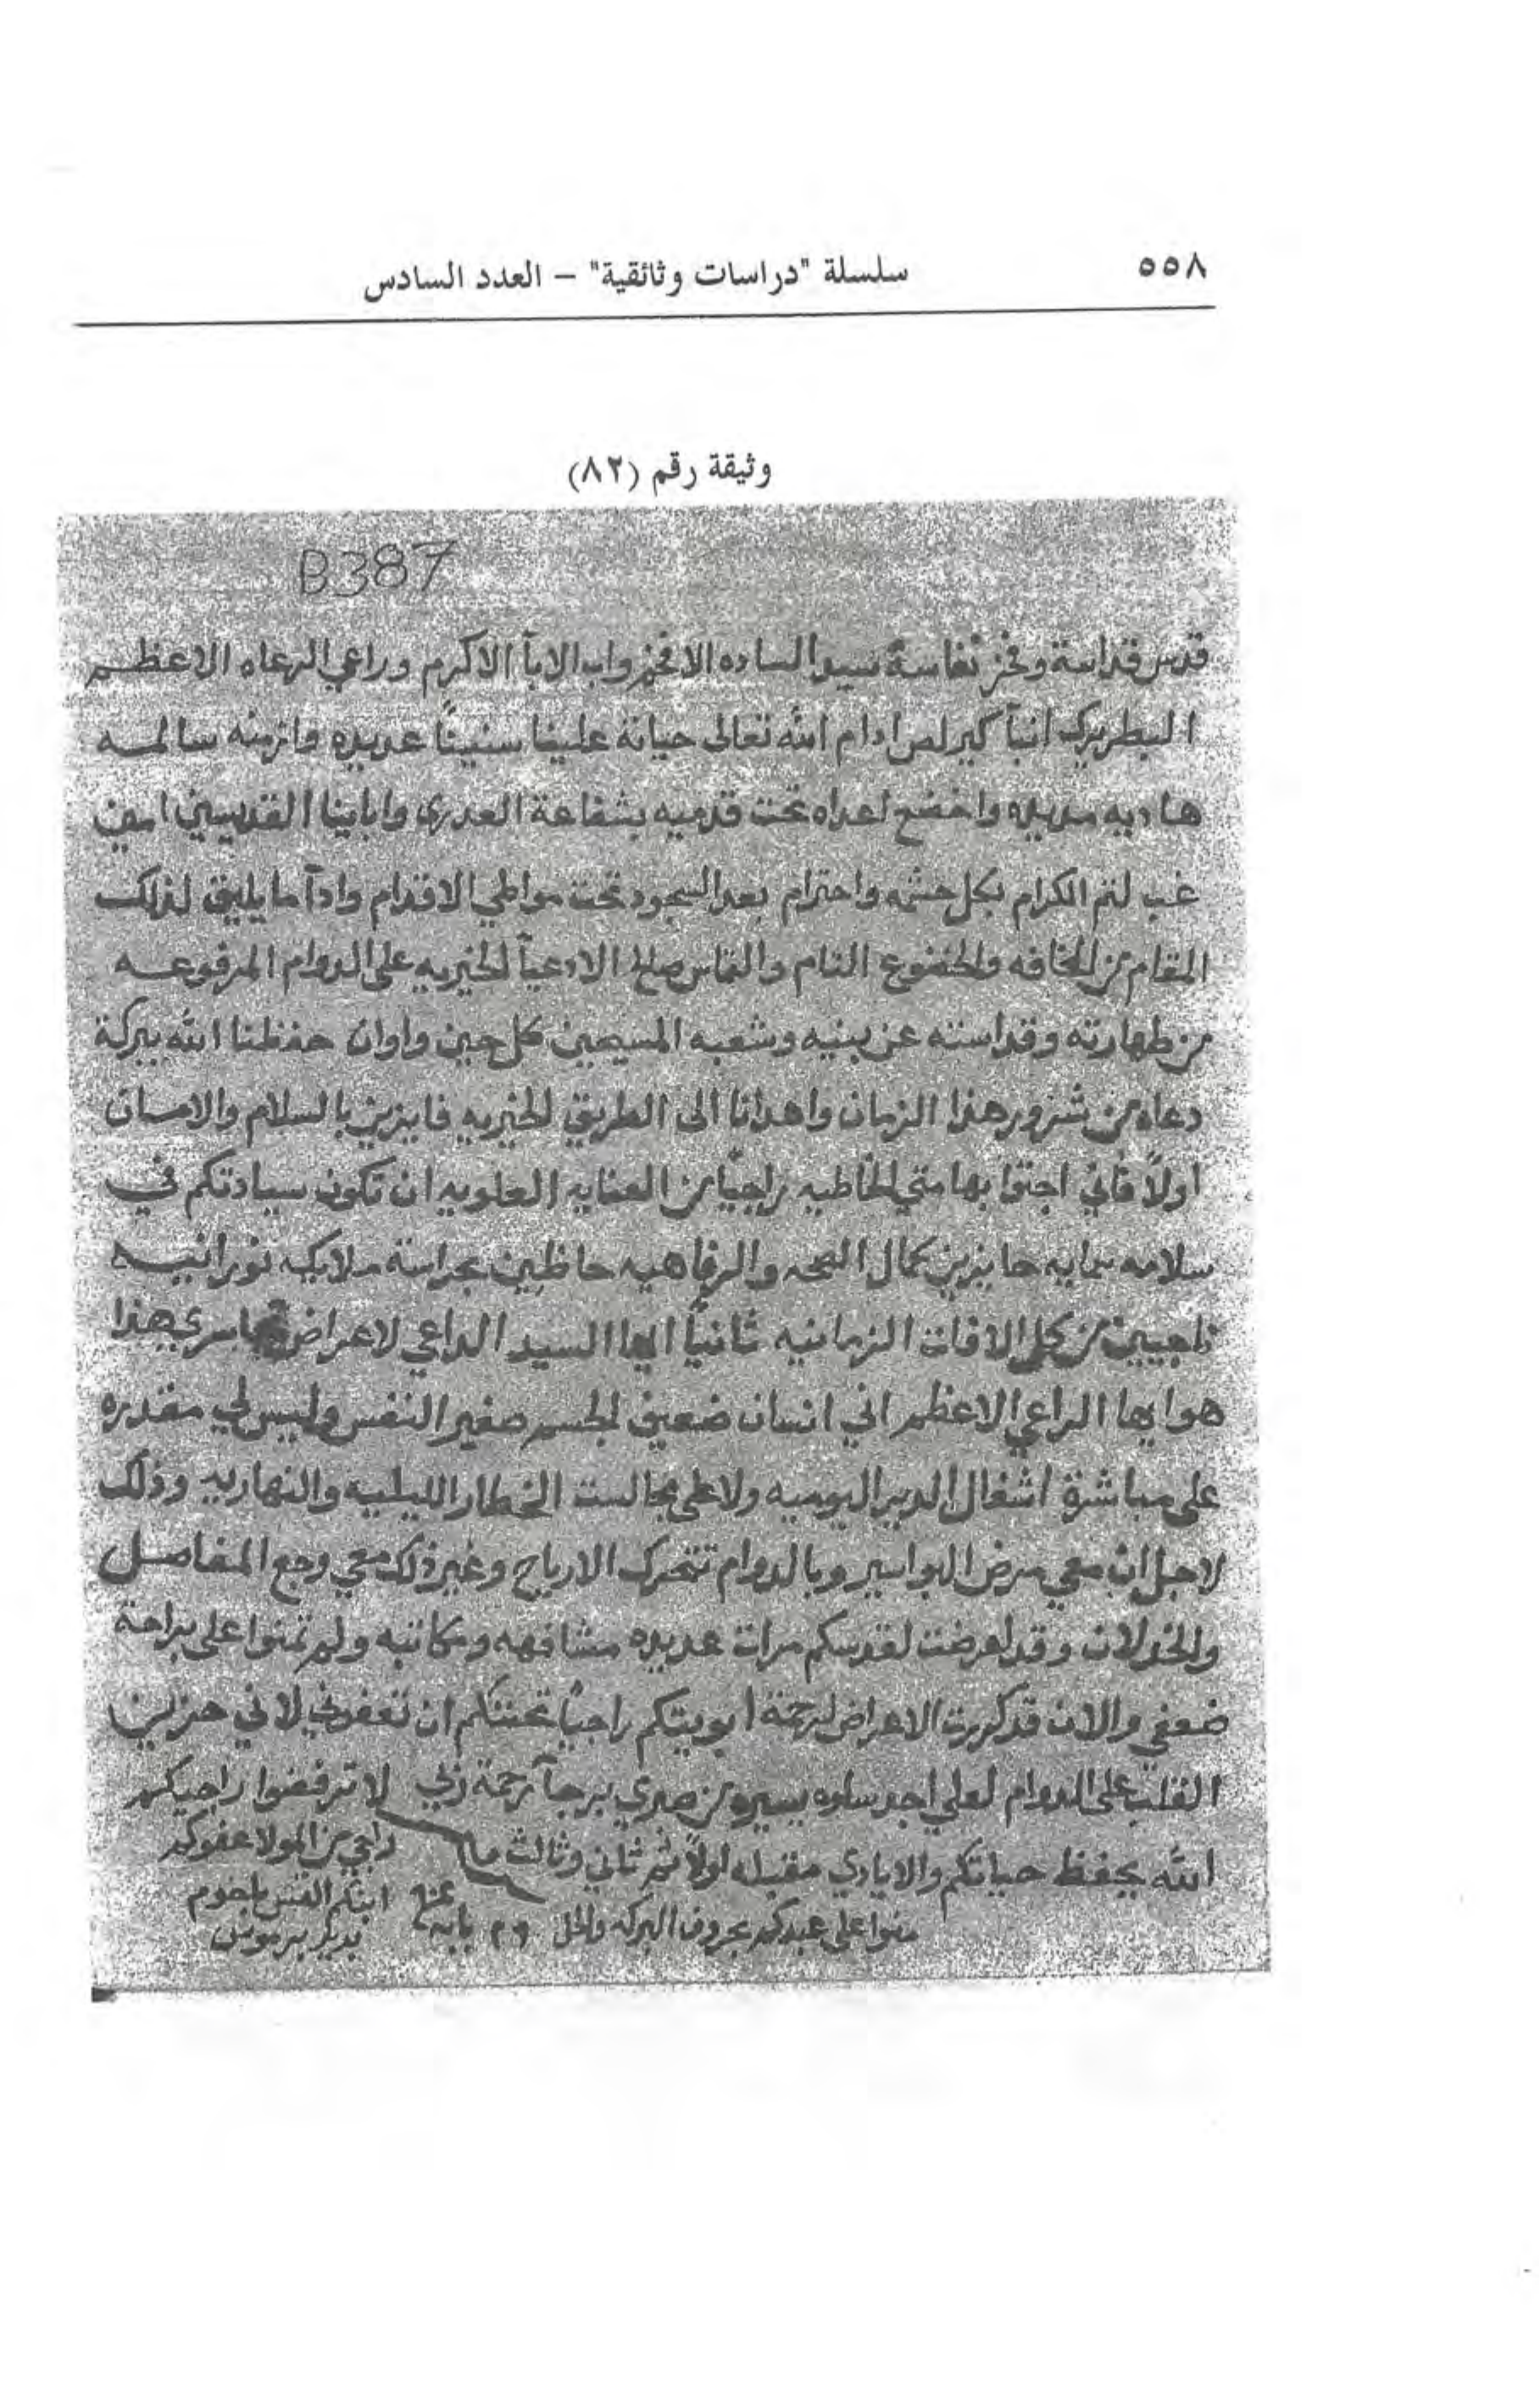 ٥٥٨
سلسلة "دراسات وثائقية" – العدد السادس
وثيقة رقم (٨٢)
B387
قدس قداسة وفخر نفاسة سيد الساده الافخم واب الابآ الاكرم وراعي الرعاه الاعظم
البطريرك انبآ كيرلص ادام الله تعالى حياته علينا سنينًا عديده وازمنه سالمه
هاديه مديده واخضع اعداه تحت قدميه بشفاعة العدرى وابآينا القديسين امين
غب لتم الكرام بكل حشمه واحترام بعد السجود تحت مواطي الاقدام وادآ ما يليق لذلك
المقام من المخافه والخضوع التام والتماس صالح الادعيآ الخيريه على الدوام المرفوعه
من طهارته وقداسته عن بنيه وشعبه المسيحين كل حين واوان حفظنا الله ببركة
دعاه من شرور هذا الزمان واهدانا الى الطريق الخيريه فايزين بالسلام والامان
اولاً فاني اجثوا بهامتي الخاطيه راجيًا من العنايه العلويه ان تكون سيادتكم في
سلامه حايزين كمال الصحه والرفاهيه حافظين بحراسة ملايكه نورانيه
ناجيين من كل الافات الزمانيه ثانيًا ايها السيد الداعي لاعراض هذا
هو ايها الراعي الاعظم اني انسان ضعيف الجسم صغير النفس وليس لي مقدره
على مباشرة اشغال الدير اليوميه ولا على مجالست الخطار الليليه والنهاريه وذلك
لاجل ان معي مرض البواسير وبالدوام تتحرك الارياح وغير ذلك معي وجع المفاصل
والخدلان وقد اعرضت لقدسكم مرات عديده مشافهه ومكاتبه ولم تمنوا على براحة
ضعفي والان قد كررت الاعراض لرحمة ابويتكم راجيًا تحننكم ان تعفوني لاني حزين
القلب على الدوام لعلي اجد سلوه يسيره من صدري برجآ رحمة ربي لا ترفضوا راجيكم
الله يحفظ حياتكم والايادي مقبله اولاً ثم ثاني وثالث راجي من المولا عفوكم
منوا على عبدكم بحروف البركه والحل بابه ابنكم القس باخوم
بدير برموس